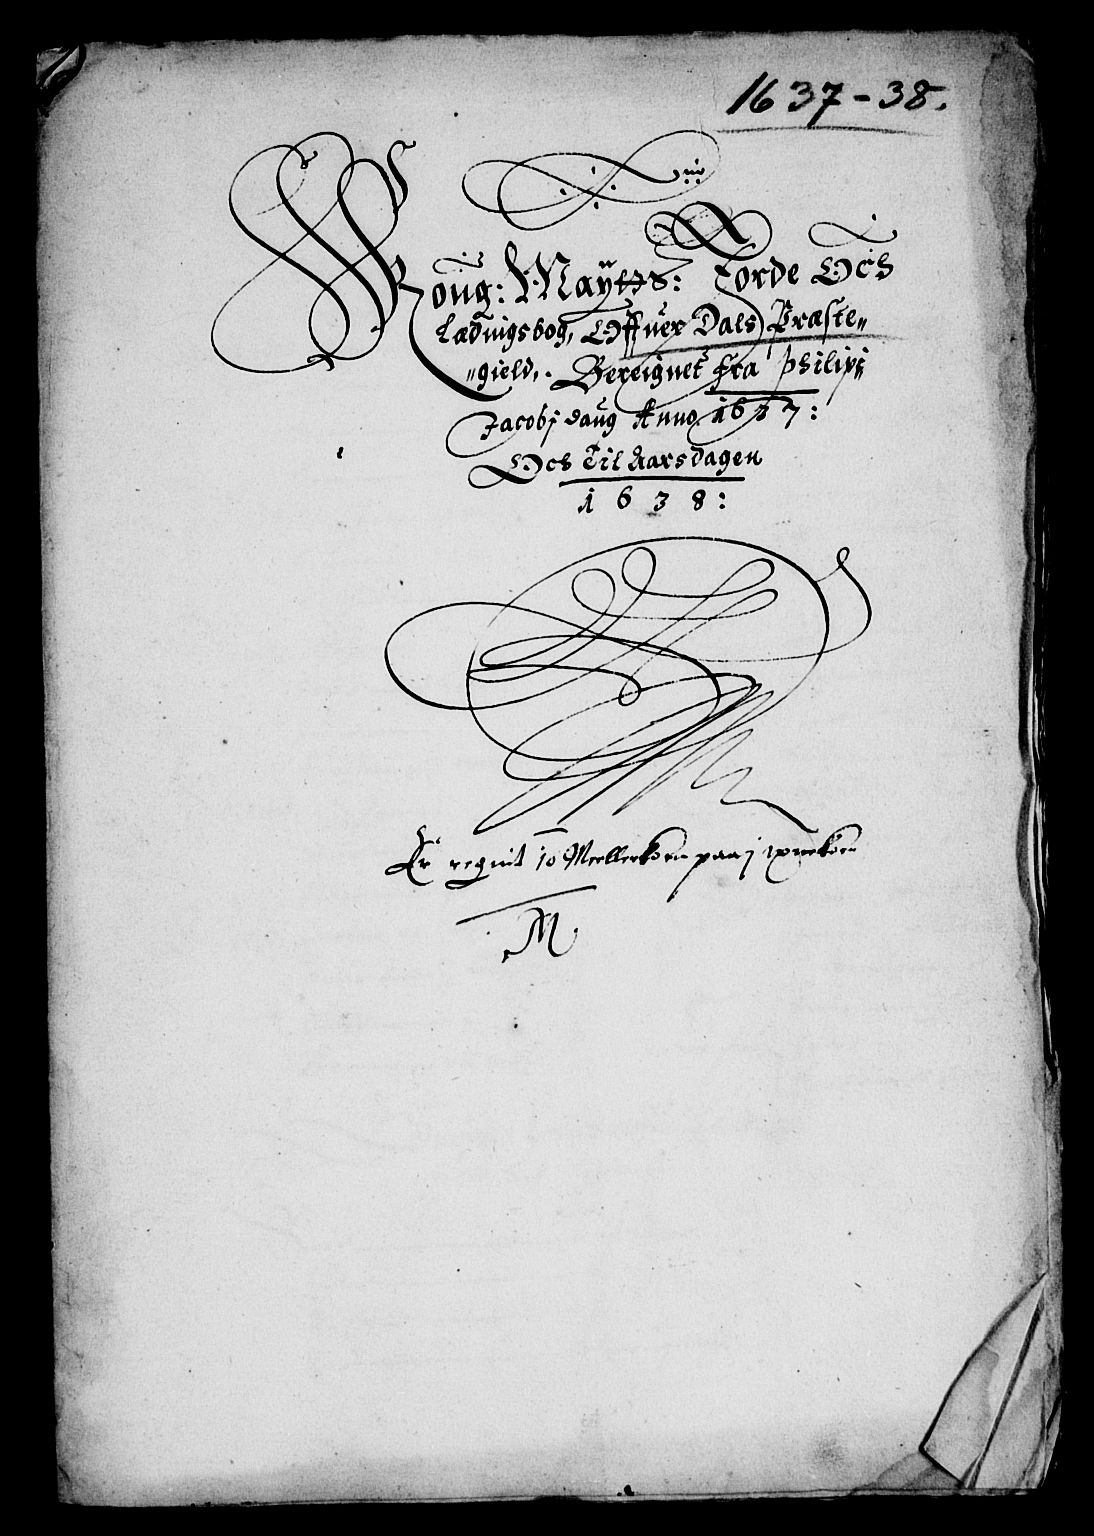 1637-38.
Kong: Maÿtts: Jorde Och
Ledingsbog, Offuer Dals Præste„
„gield, Bereignet Fra Philipi
Jacobj daug Anno 1637:
Och Til Aarsdagen
1638:
Er regnit 10 Mellerkorn paa j
M